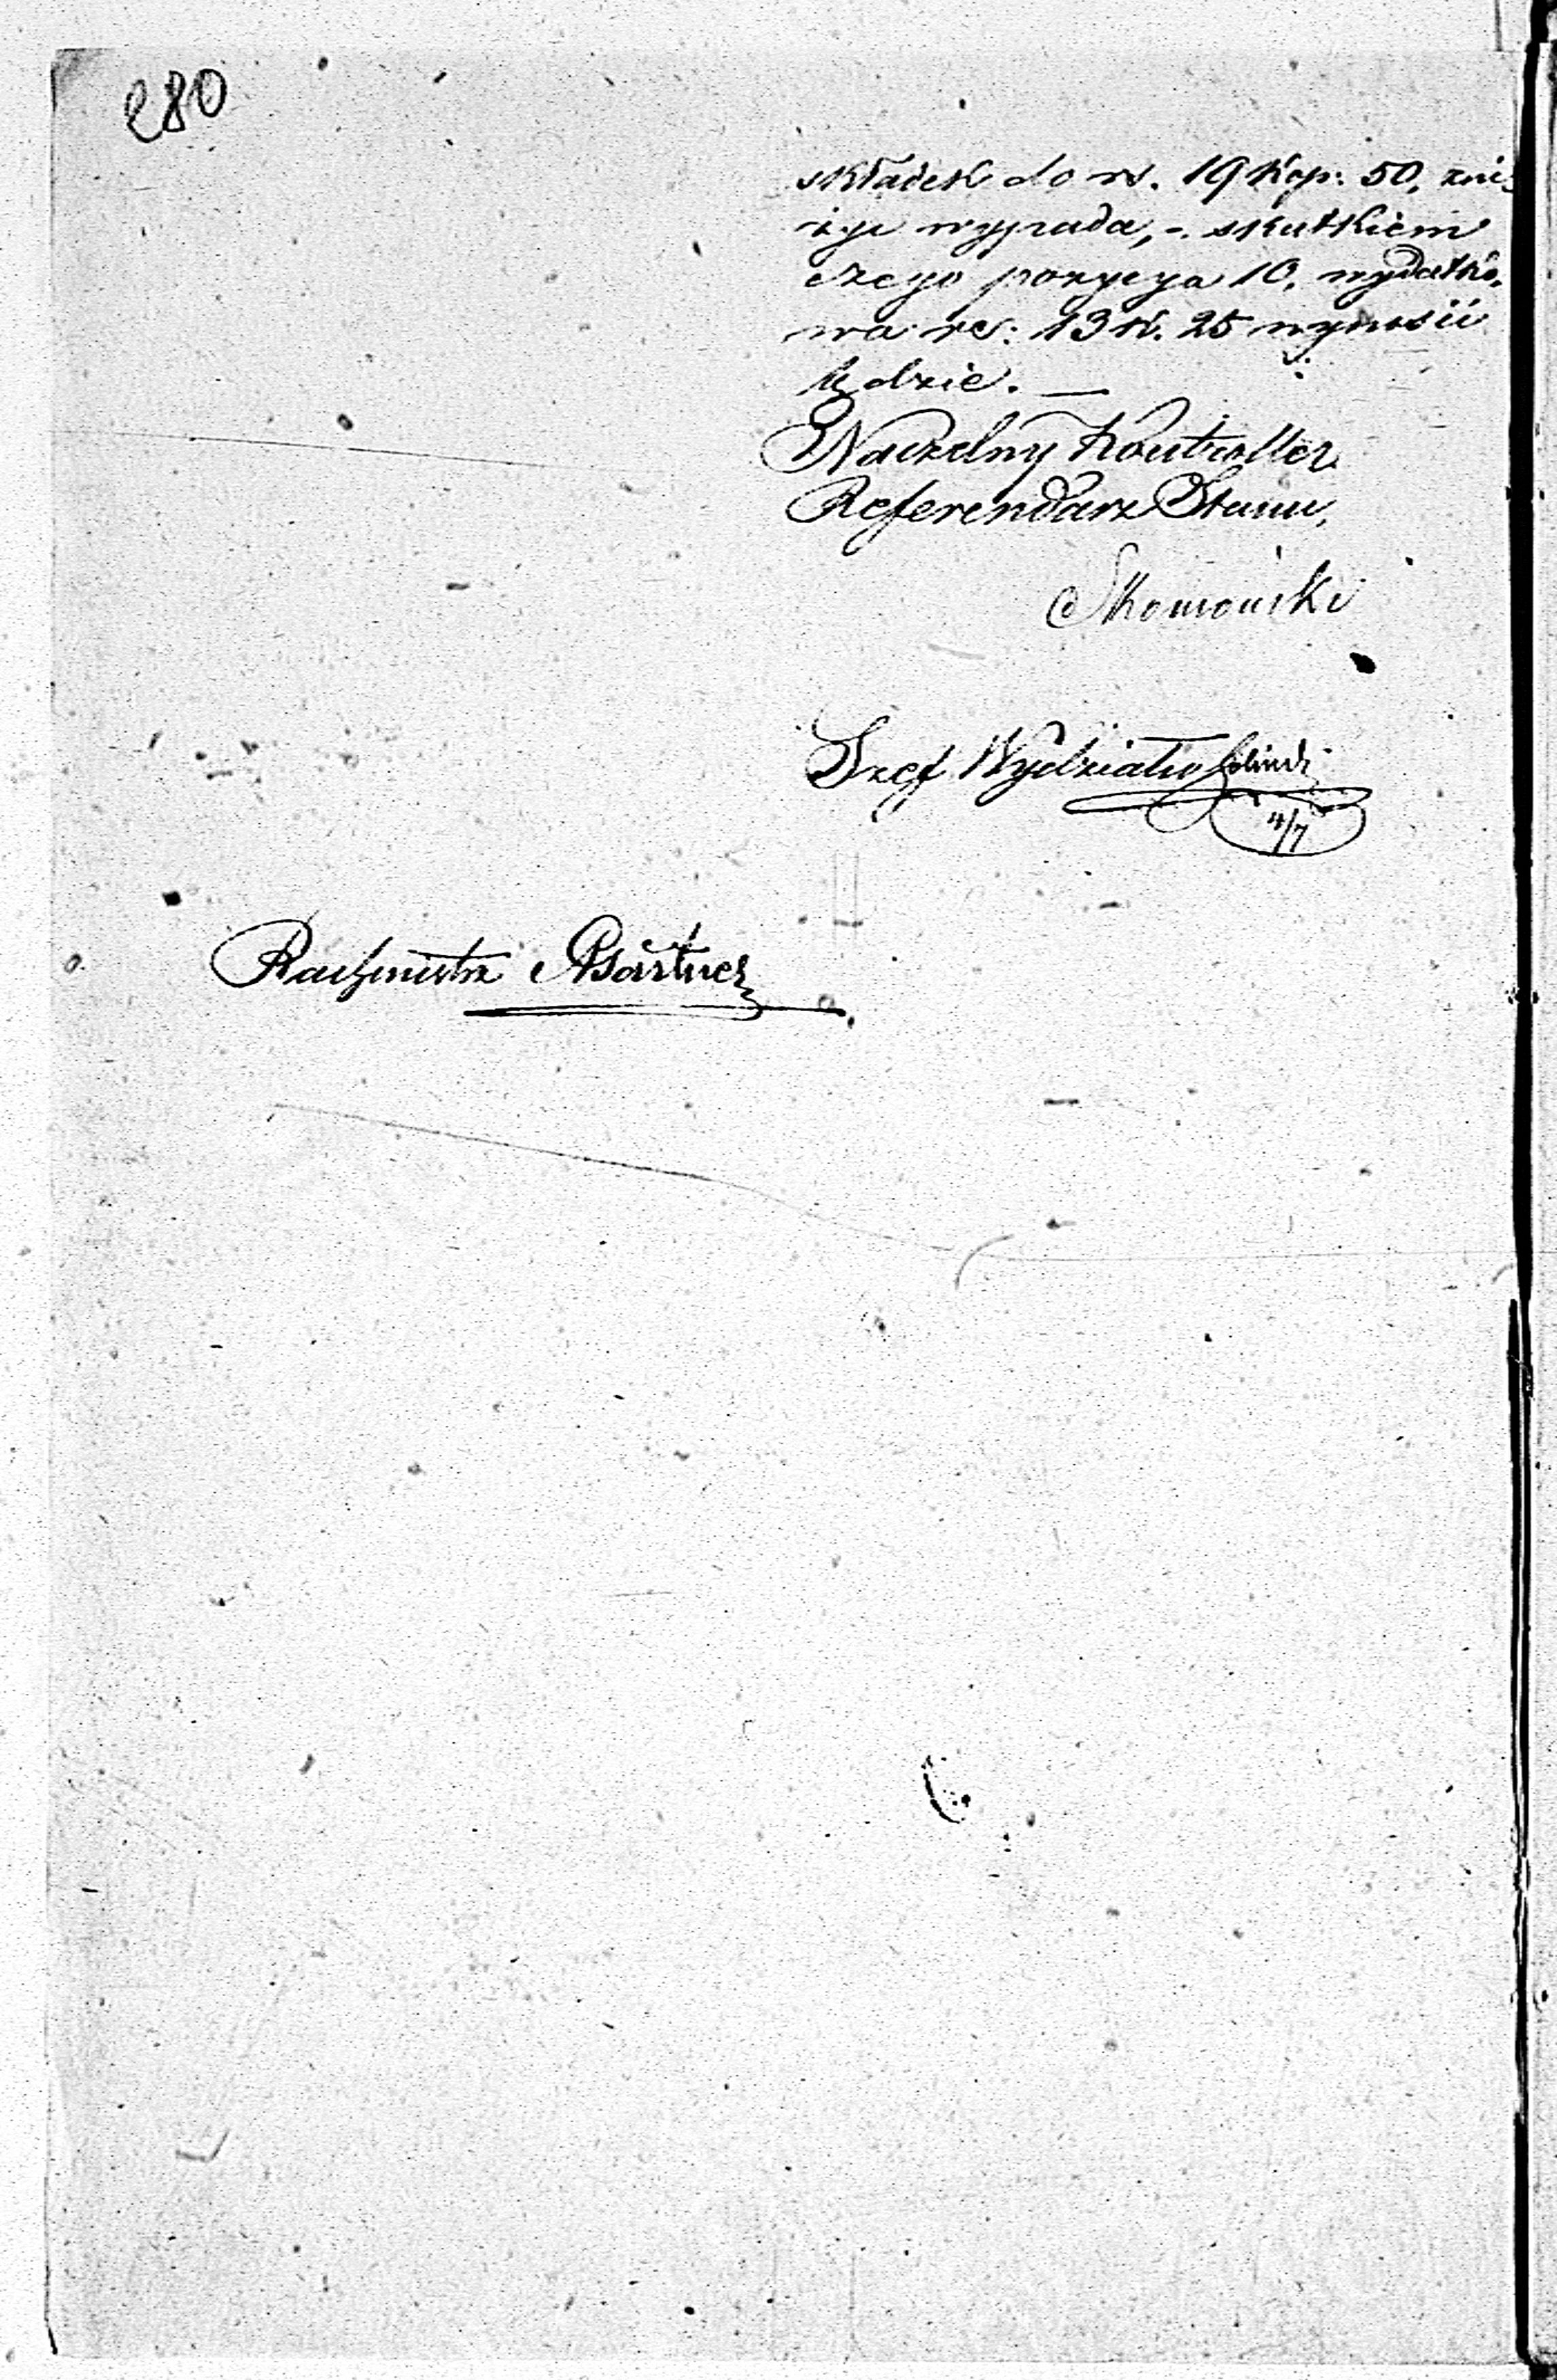 280
składek do rs. 19 kop: 50, zni-
żyć wypada, -. skutkiem
czego pozycya 10, wydatko-
wa rs: 13 k. 25 wynosić
będzie. —
Naczelny Kontroller
Referendarz Stanu,
Szef Wydziału
4/7
Rachmistrz